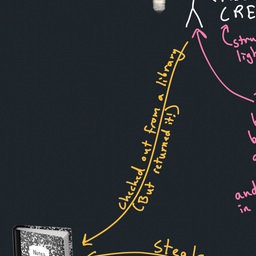 CRE
(stru
ligh
Checked out from a library
(But returned it!)
and
in
Notes
steals